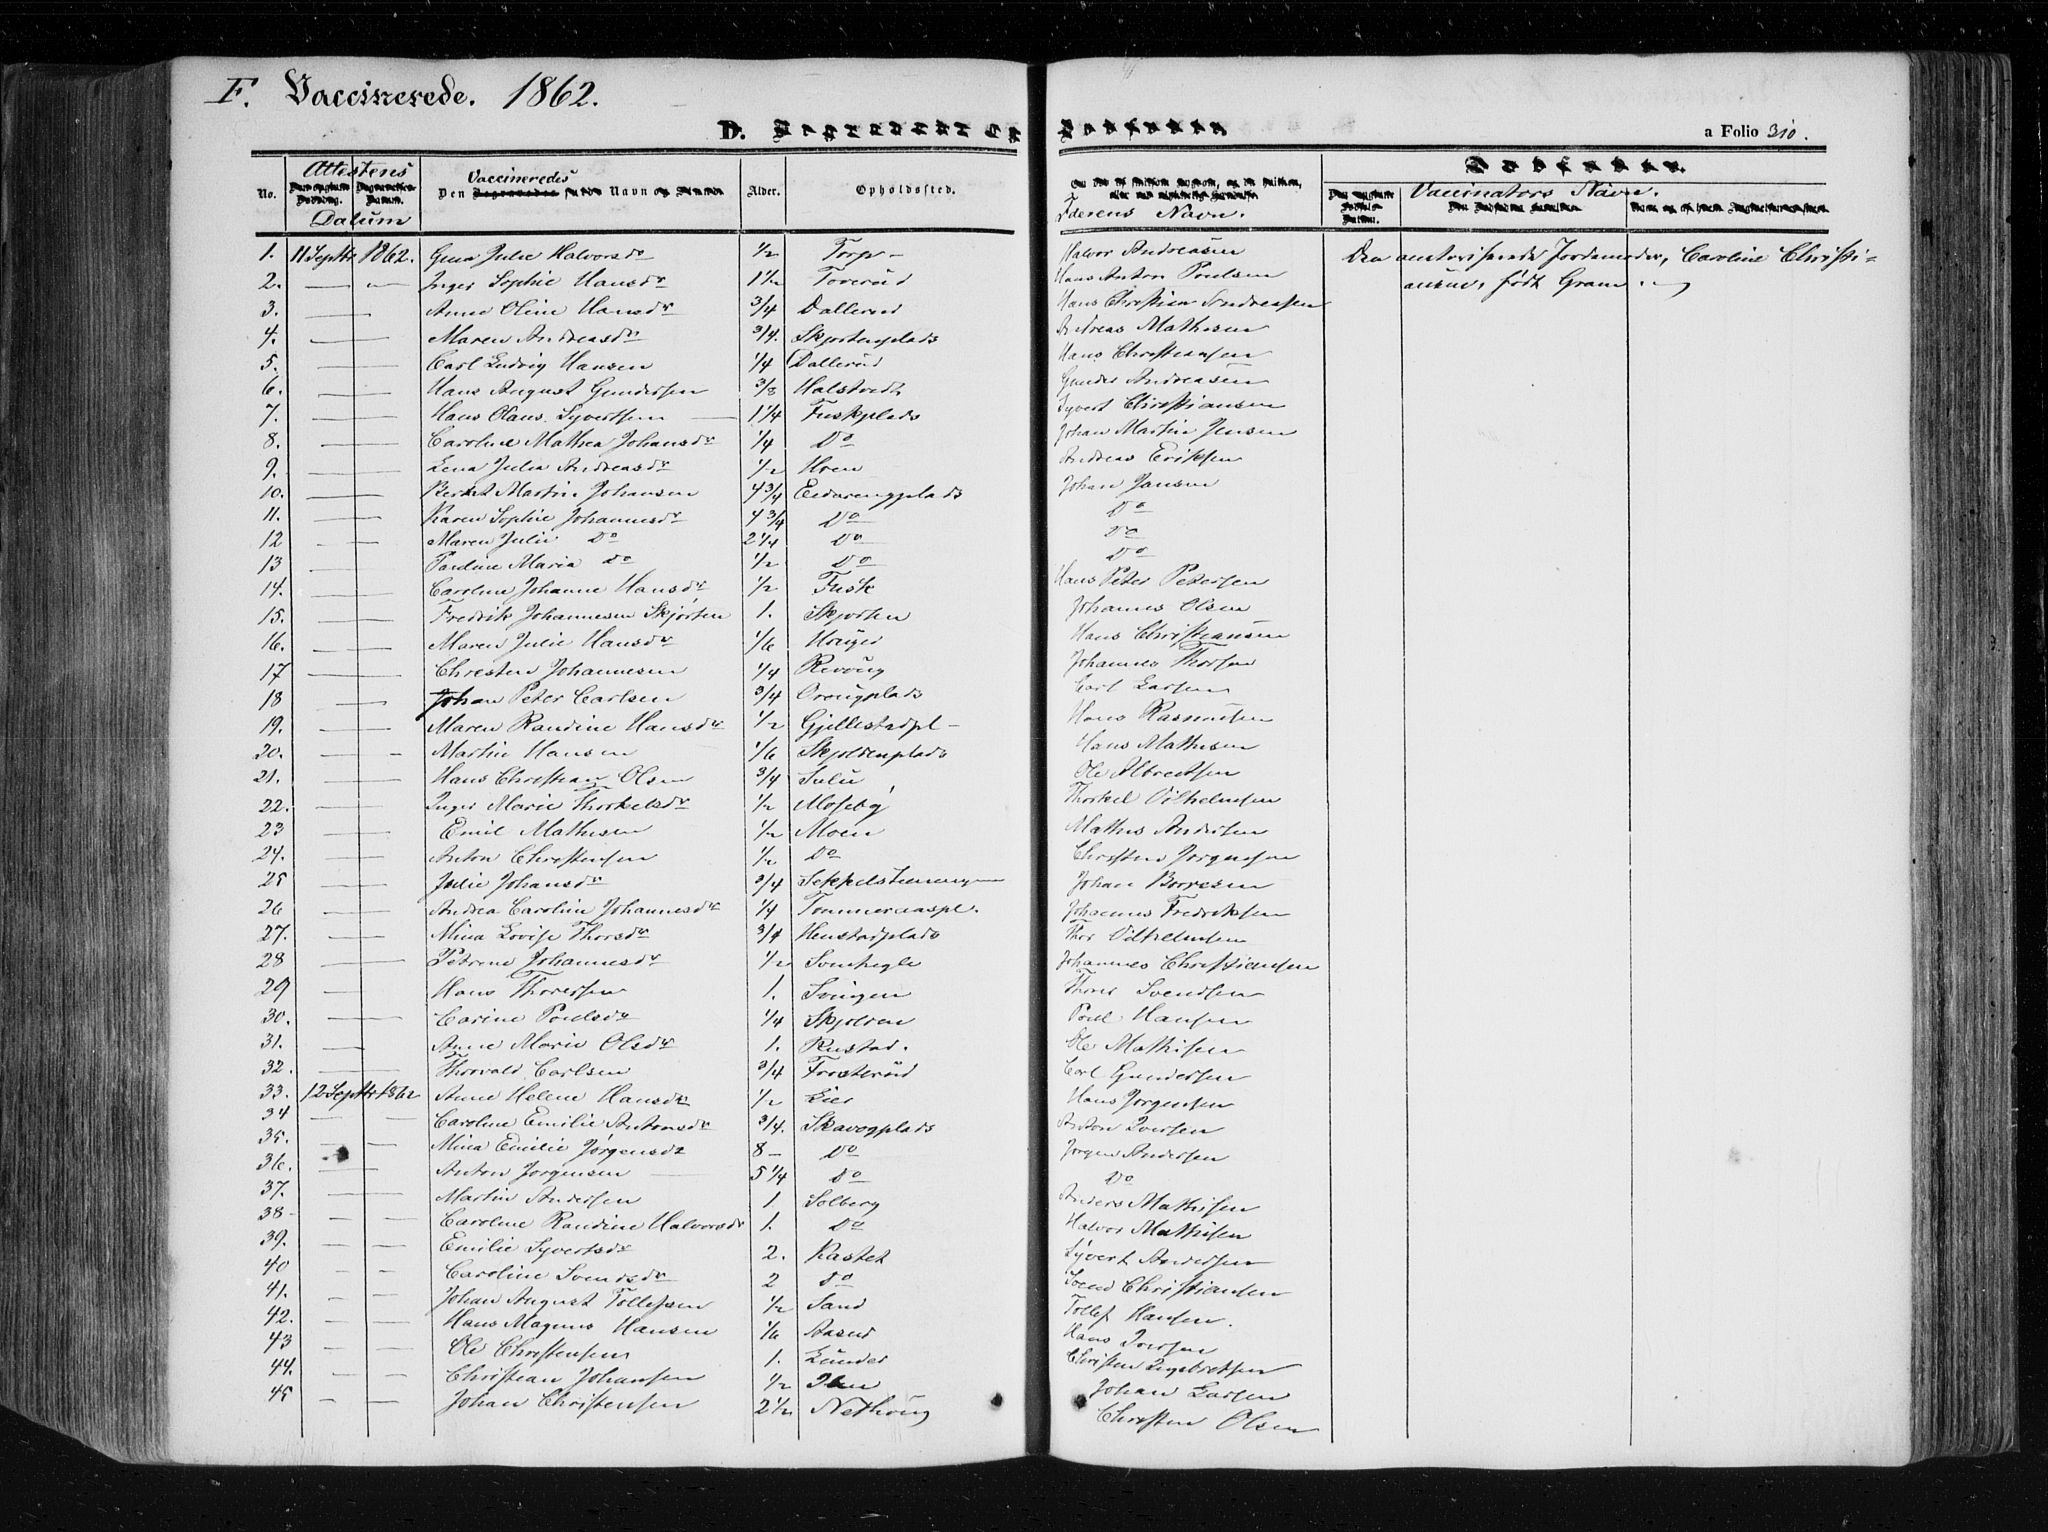 F. Vaccinerede. 1862.
D.
a Folio 310.
No. Attestens Datum Den Vaccineredes Navn Alder. Opholdssted. Faderens Navn. Vaccinators Navn.
1. 11 Septbr 1862. Gina Julie Halvorsdr 1/2 Torp Halvor Andreasen Den autoriserede Jordemoder, Caroline Christi-
2. — — Inger Sophie Hansdr 1 1/2 Toverud Hans Anton Poulsen ansen, født Gram.
3. — Anne Oline Hansdr 3/4 Dallerud Hans Christian Andreassen
4. — Maren Andreasdr 3/4. Skjortenplads Andreas Mathisen
5. — Carl Ludvig Hansen 1/4 Dallerud Hans Christiansen
6. — Hans August Gundersen 3/8 Halstvedt Gunder Andreasen
7. — Hans Olaus Syvertsen 1 1/4 Fuskplads Syvert Christiansen
8. — Caroline Mathea Johansdr 1/4 Do Johan Martin Jensen
9. — Lena Julia Andreasdr 1/2 Hoen Andreas Eriksen
10. — Martin Johansen 4 3/4 Johan Jansen
11. — Karen Sophie Johannesdr 4 3/4 Do Do
12 — Maren Julie Do 2 1/4 Do Do
13 — Pauline Maria Do 1/2 Do Do
14. — Caroline Johanne Hansdr 1/2 Fusk Hans Peter Petersen
15. — Fredrik Johannesen Skjorten 1. Skjorten Johannes Olsen
16. — Maren Julie Hansdr 1/6 Hans Christiansen
17 — Christen Johannesen 1/4 Johannes Thorsen
18 — Johan Peter Carlsen 3/4 Carl Larsen
19. — Maren Randine Hansdr 1/2 Gjellestadpl — Hans Rasmusen
20. — Martin Hansen 1/6 Skjoldenplads Hans Mathisen
21. — Hans Christian Olsen 3/4 Ole Albretsen
22. — Inger Marie Thorkelsdr 1/2 Moseby Thorkel Vilhelmsen
23 — Emil Mathisen 1/2 Moen Mathis Andersen
24. — Anton Christensen 1/2 Do Christen Jørgensen
25 — Julie Johansdr 3/4 Johan Borresen
26 — Andrea Caroline Johannesdr 1/4 Tommeraaspl. Johannes Fredriksen
27. — Mina Lovise Thorsdr 3/4 Henstadplads Thor Vilhelmsen
28 — Petrine Johannesdr 1/2 Johannes Christiansen
29 — Hans Thoresen 1. Svingen Thore Svendsen
30. — Carine Poulsdr 1/4 Skjolden Poul Hansen
31. — Anne Marie Olsdr 1. Rustad. Ole Mathisen
32. — Thorvald Carlsen 3/4 Frosterud Carl Gundersen
33. 12 Septbr 1862 Anne Helene Hansdr 1/2 Lier Hans Jørgensen
34 — Caroline Emilie Antonsdr 3/4. Skavogplads Anton Iversen
35. — Mina Emilie Jørgensdr 8 — Do Jørgen Andersen
36. — Anton Jørgensen 5 1/4 Do Do
37. — Martin Andersen 1 Solberg Anders Mathisen
38 — Caroline Randine Halvorsdr 1. Do Halvor Mathisen
39. — Emilie Syvertsdr 2. Kastet Syvert Andersen
40 — Caroline Svendsdr 2 Do Svend Christiansen
41. — Johan August Tollefsen 1/2 Sand Tollef Hansen.
42. — Hans Magnus Hansen 1/6 Aasen Hans Iversen
43 — Ole Christensen 1. Lunder Christen Ingebretsen
44. — Christian Johansen 1/2 Johan Larsen
45 — Johan Christensen 2 1/2 Christen Olsen